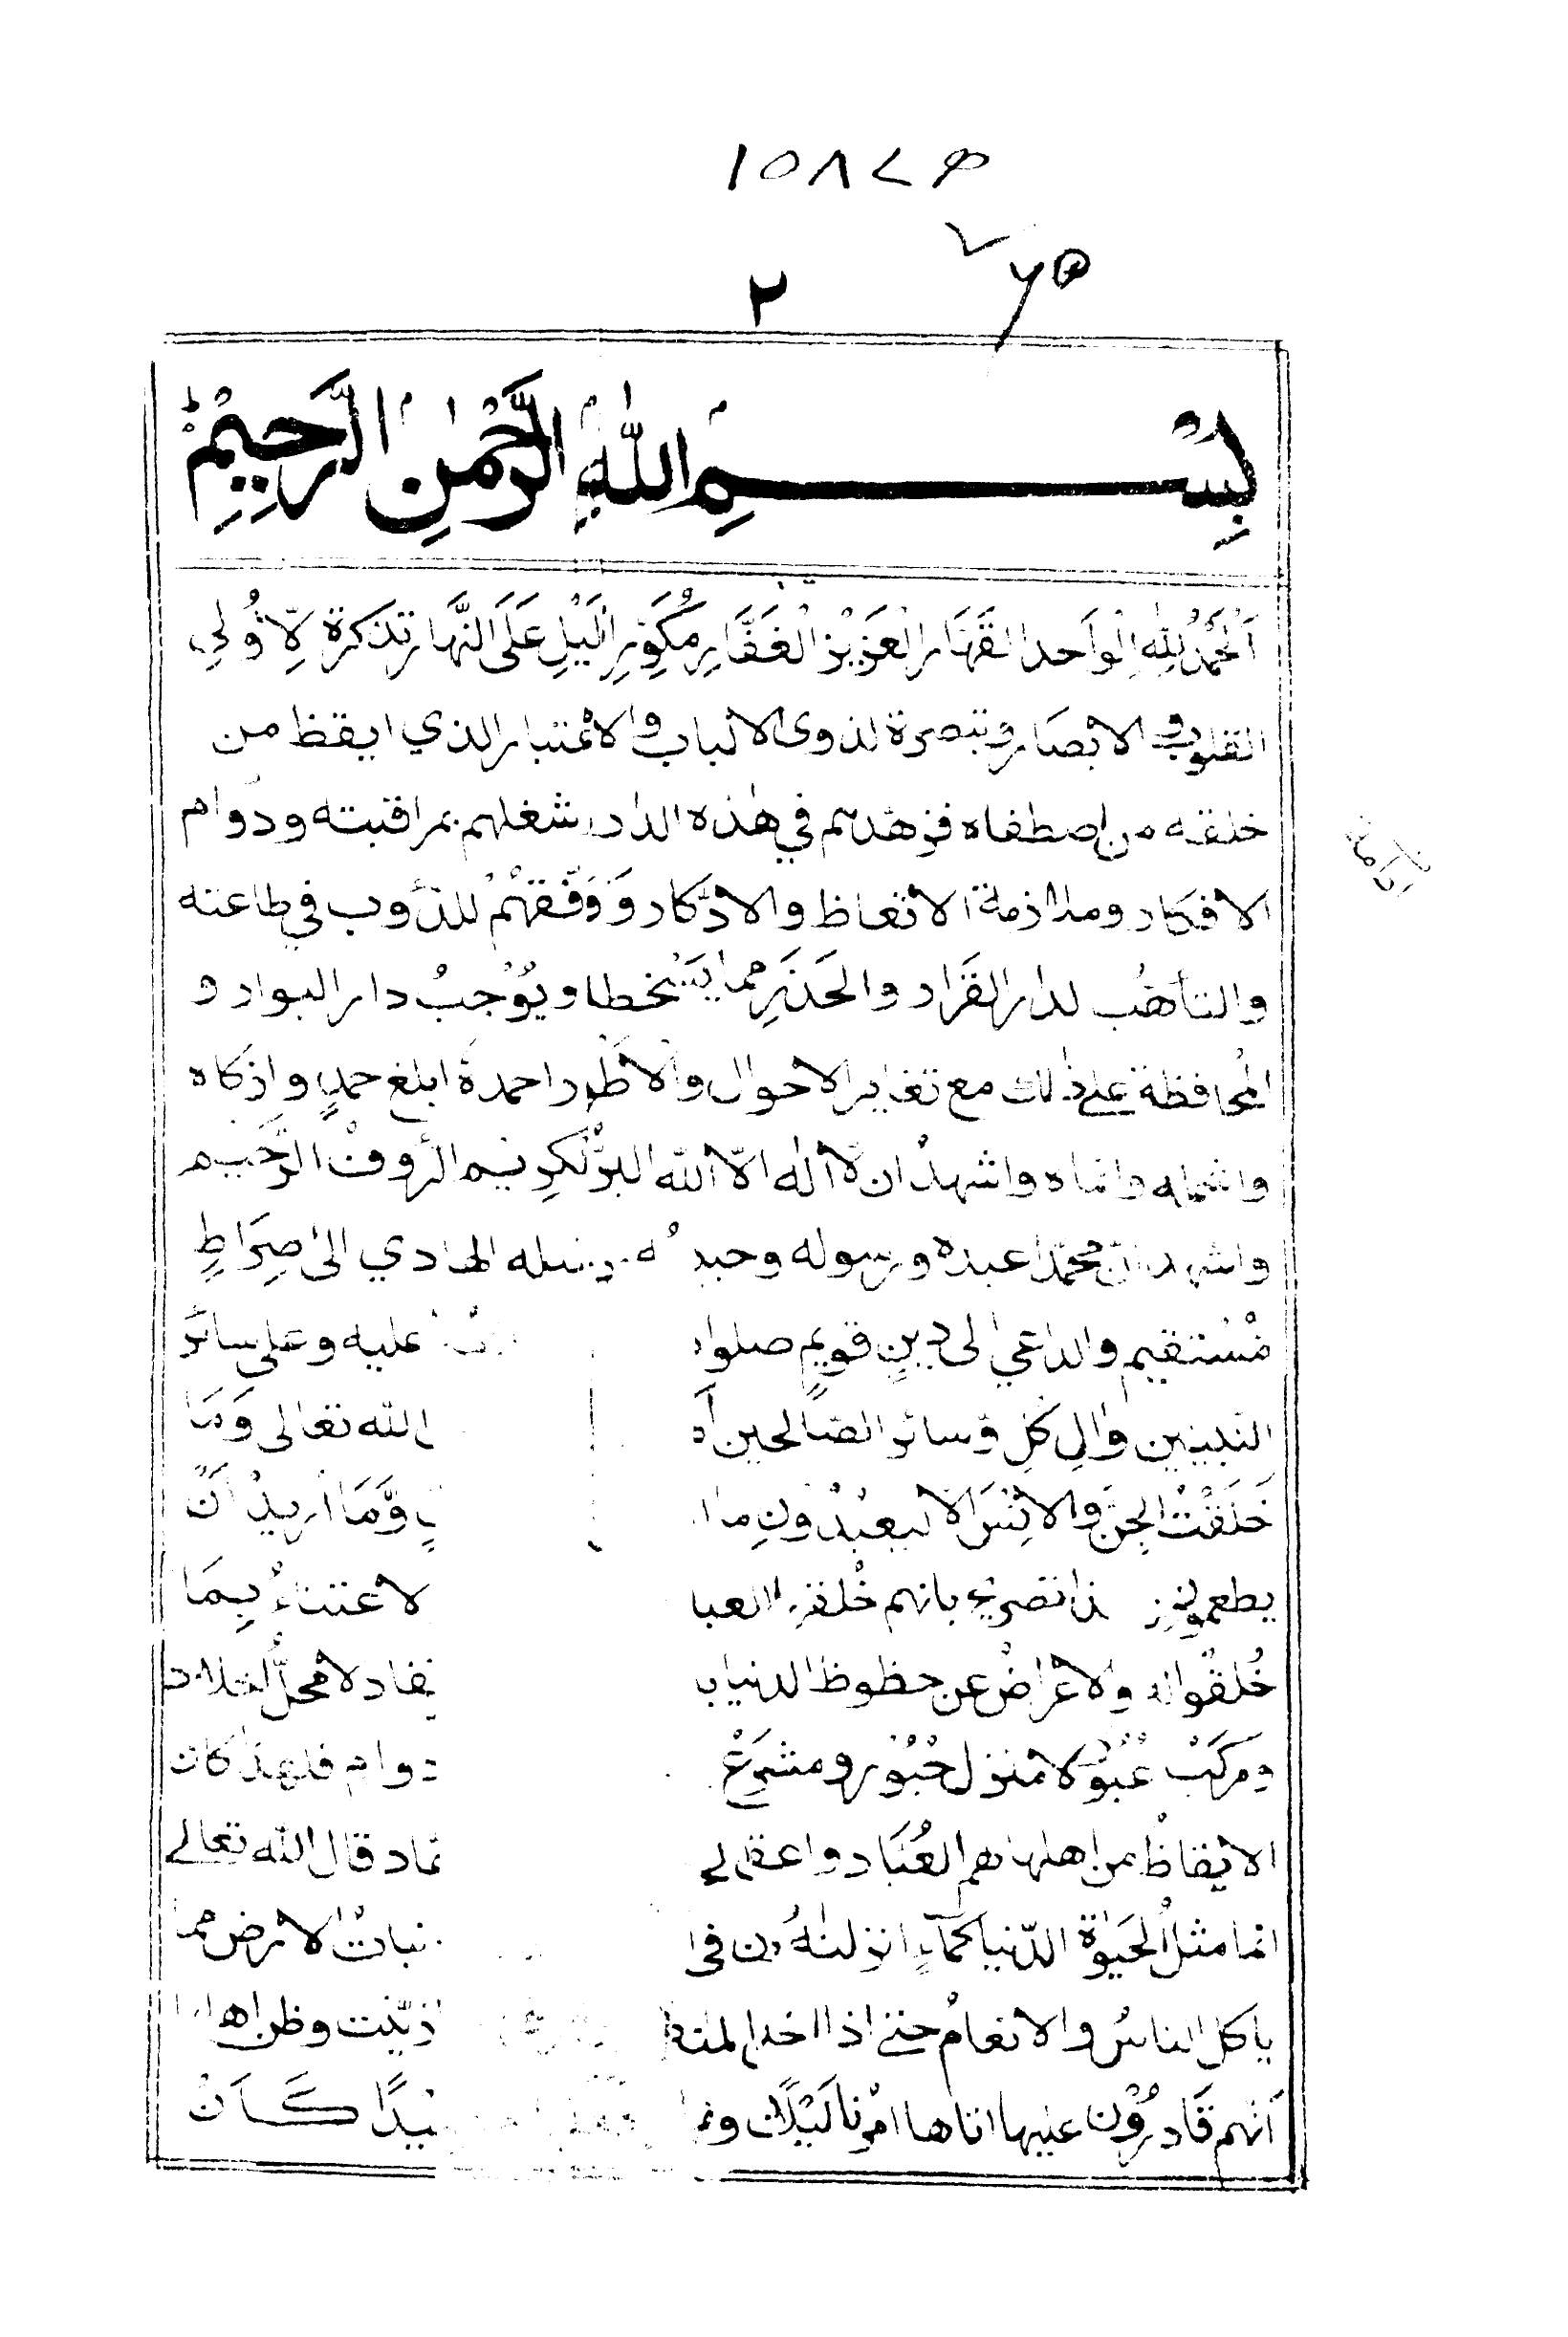 ١٥٨٧٣
٢
بِسْمِ اللهِ الرَّحْمٰنِ الرَّحِيْمِ
اَلْحَمْدُ لِلّٰهِ الْوَاحد القَهَّار العَزِيْز الْغَفَّارِ مُكَوِّرِ الَّيْلِ عَلَى النَّهَار تذكرة لِاُولِي
القلوب والابصَار وتبصرة لذوى الالباب والاعتبار الذي ايقظ من
خلقه من اصطفاه فزهدهم في هٰذه الدار شغلهم بمراقبته ودوام
الافكار وملازمة الاتعاظ والادّكار وَوَفَّقَهُمْ للدَّوب في طاعته
والتأهُّب لدار القَرَار والحَذَرِ مما يَسْخطه ويُوْجبُ دار البوار و
المُحافظة على ذٰلك مع تغاير الاحوال والاطْوار احمدهُ ابلغ حمدٍ وازكاه
واشمله وانماه واشهدُ ان لّا الٰه الّا الله البرُّ الكرِيم الرؤوفْ الرَّحيم
واشهد ان محمّدا عبده ورسوله وحبيبه وخليله الهادي الىٰ صِرَاطٍ
مُسْتقيم والداعي الى دِينٍ قويمٍ عليه وعلى سائر
النبيين واٰلِ كلٍ وسائر الصَّالحين الله تعالى وَمَا
خَلَقْتُ الجِنَّ والاِنْسَ الّا ليعبُدُونِ ما وَّمَا اُريدُ اَنْ
تصريح بانهم خُلقوا الاعتناءُ بِمَا
خُلقُوا له والاعْراضُ عن حظوظ الدنيا نفاد لا محلُّ اخلاد
ومركَبُ عُبُوْر لا منزل حُبُوْر ومشرَعُ دوام فلهذا كان
الايقاظُ من اهلها هم العُبّاد واعقل قال الله تعالى
انما مثلُ الحَيٰوة الدّنيا كَمَآءٍ انزلنٰهُ من نباتُ الارض مما
ياكل الناسُ والانعامُ حتى اذا اخذت وازّيّنت وظن اهلها
اَنّهم قَادِرُوْن عليها اتاها امْرُنا لَيْلًا كَاَنْ